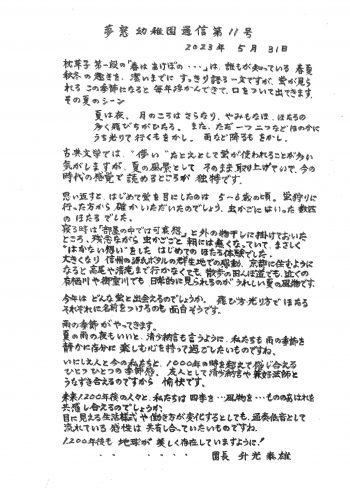 夢窓幼稚園通信第11号
2023年 5月 31日
枕草子 第一段の「春はあけぼの・・・」は、誰もが知っている 春夏
秋冬の趣きを、潔いまでに すっきり語る一文ですが、蛍が見ら
れる この季節になると 毎年浮かんできて、口をついて出てきます。
その夏のシーン
夏は夜、月のころは さらなり、やみもなほ、ほたるの
多く飛びちがひたる。また、ただ一つ二つなど ほのかに
うち光りて行くもをかし。雨など降るも をかし。
古典文学では、"儚い" たとえとして蛍が使われることが多い
気がしますが、夏の風景として そのまま取り上げていて、今の
時代の感覚で 読めるところが 独特です。
思い返すと、はじめて蛍を目にしたのは 5〜6歳の頃。蛍狩りに
行った方から 確かいただいたのでしょう、虫かごにはいった数匹
のほたるでした。
夜8時は「部屋の中では可哀想」と外の物干しに掛けておいた
ところ、残念ながら 虫かごごと 朝には無くなっていて、まさしく
"はかない想い"をした はじめてのほたる体験でした。
大きくなり 信州の源氏ボタルの群生地での感動、京都に住むように
なると 高尾や清滝まで行かなくても、散歩の田んぼ道でも、近くの
有栖川や御室川でも 日常的に見られるのが うれしい夏の風物です
今年は どんな蛍と出会えるのでしょうか。飛び方光り方で ほたる
それぞれに名前をつけるのも 面白そうです。
雨の季節がやってきます。
夏の雨の夜もいいと、清少納言も言うように、私たちも 雨の季節を
静かに存分に 楽しむ心を持って過ごしたいものですね。
いにしえ人と今の私たちと、1000年の時を超えて感じ合える
ひとつひとつの季節感。友人として清少納言や兼好法師と
うなずき合えるのですから 愉快です。
未来1200年後の人々と、私たちは 四季を…風物を…もののあはれを
共感し合えるのでしょうか。
目に見える生活様式や働き方が変化するとしても、通奏低音として
流れている感性は 共有し合っていたいものですね。
1200年後も 地球が 美しく存在していますように!
園長 升光泰雄